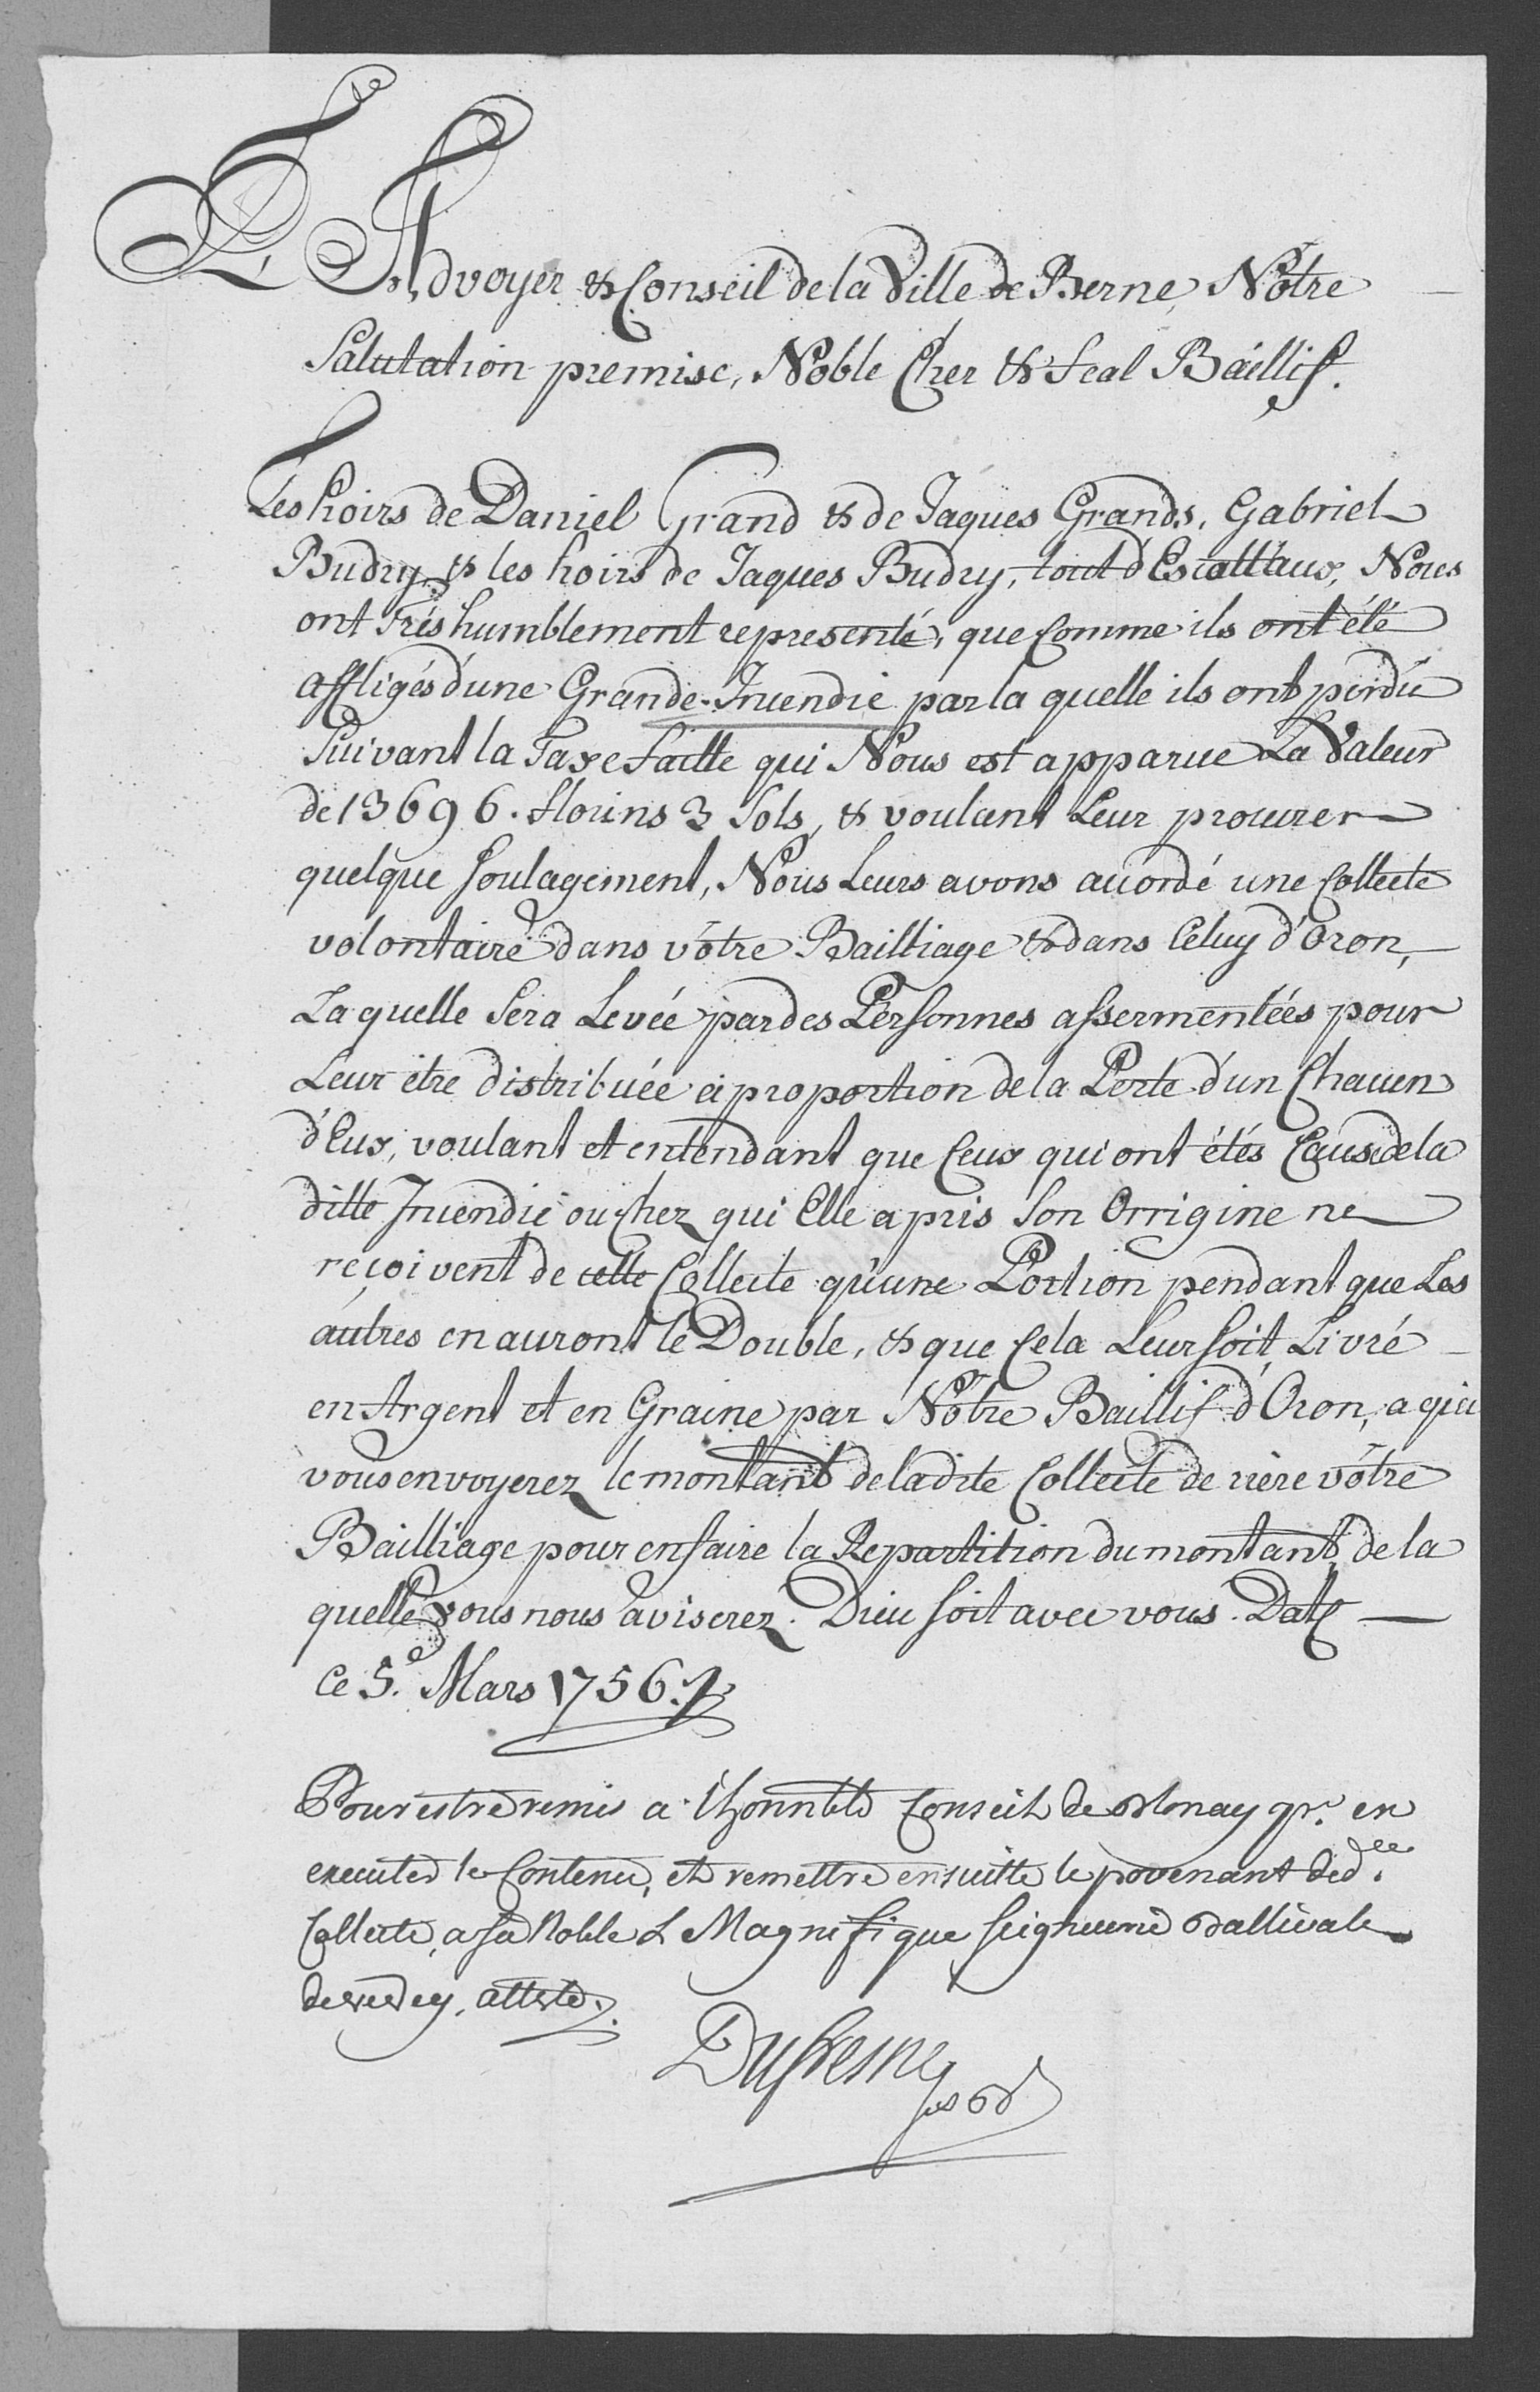 L'Advoyer & Conseil de la Ville de Berne, Nôtre
Salutation premise, Noble Cher & feal Baillif.
Les hoirs de Daniel Grand & de Jaques Grands, Gabriel
Budry, & les hoirs de Jaques Budry, tout d'Escotteaux, Nous
ont Trés humblement representé, que Comme ils ont été
affligés d'une Grande Incendie par la quelle ils ont perdû
Suivant la Taxe faitte qui Nous est apparue La Valeur
de 13696. florins 3 Sols, & voulant Leur procurer
quelque Soulagement, Nous Leurs avons accordé une Collecte
volontaire dans vôtre Bailliage & dans Celuy d'Oron,
La quelle Sera Levée par des Personnes assermentées pour
Leur être distribuée à proportion de la Perte d'un Chacun
d'Eux, voulant et entendant que Ceux qui ont étés Cause de la
ditte Incendie ou chez qui Elle a pris Son Orrigine ne
reçoivent de cette Collecte qu'une Portion pendant que Les
autres en auront le Double, & que Cela Leur soit Livré
en Argent et en Graine par Nôtre Baillif d'Oron, a qui
vous envoyerez le montant de ladite Collecte de riere vôtre
Bailliage pour en faire la Repartition du montant de la
quelle vous nous aviserez. Dieu soit avec vous. Datt
Ce 5.e Mars 1756.
Pour estre remis a l'honnble Conseil de Blonay pr. en
executer le Contenu, et remettre ensuitte le provenant de d.tte
Collecte, a sa Noble & Magnifique Seigneurie Ballivale
de Vevey, atteste.
Dufresne